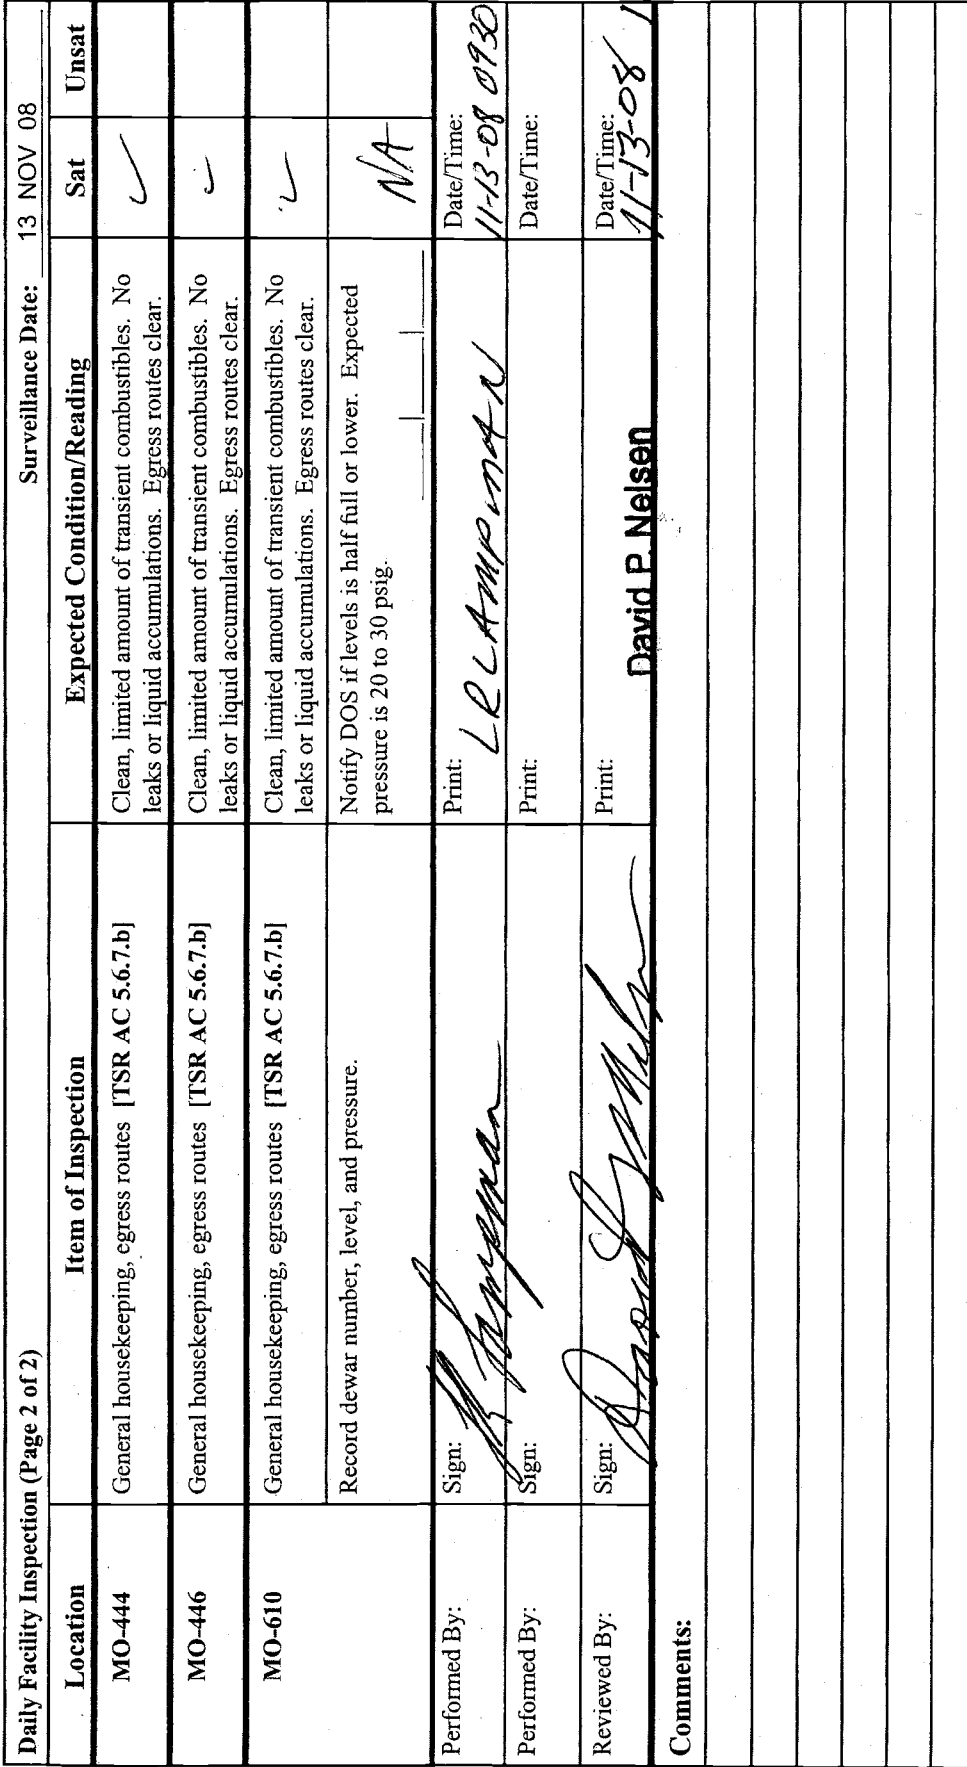 Daily Facility Inspection (Page 2 of 2) Surveillance Date: 13 NOV 08
Location Item of Inspection Expected Condition/Reading Sat Unsat
MO-444 General housekeeping, egress routes [TSR AC 5.6.7.b] Clean, limited amount of transient combustibles. No ✓
leaks or liquid accumulations. Egress routes clear.
MO-446 General housekeeping, egress routes [TSR AC 5.6.7.b] Clean, limited amount of transient combustibles. No ✓
leaks or liquid accumulations. Egress routes clear.
MO-610 General housekeeping, egress routes [TSR AC 5.6.7.b] Clean, limited amount of transient combustibles. No ✓
leaks or liquid accumulations. Egress routes clear.
Record dewar number, level, and pressure. Notify DOS if levels is half full or lower. Expected
pressure is 20 to 30 psig. NA
Performed By: Sign: Print: LR LAMPMAN Date/Time:
11-13-08 0930
Performed By: Sign: Print: Date/Time:
Reviewed By: Sign: Print: David P. Nelsen Date/Time:
11-13-08 1
Comments: